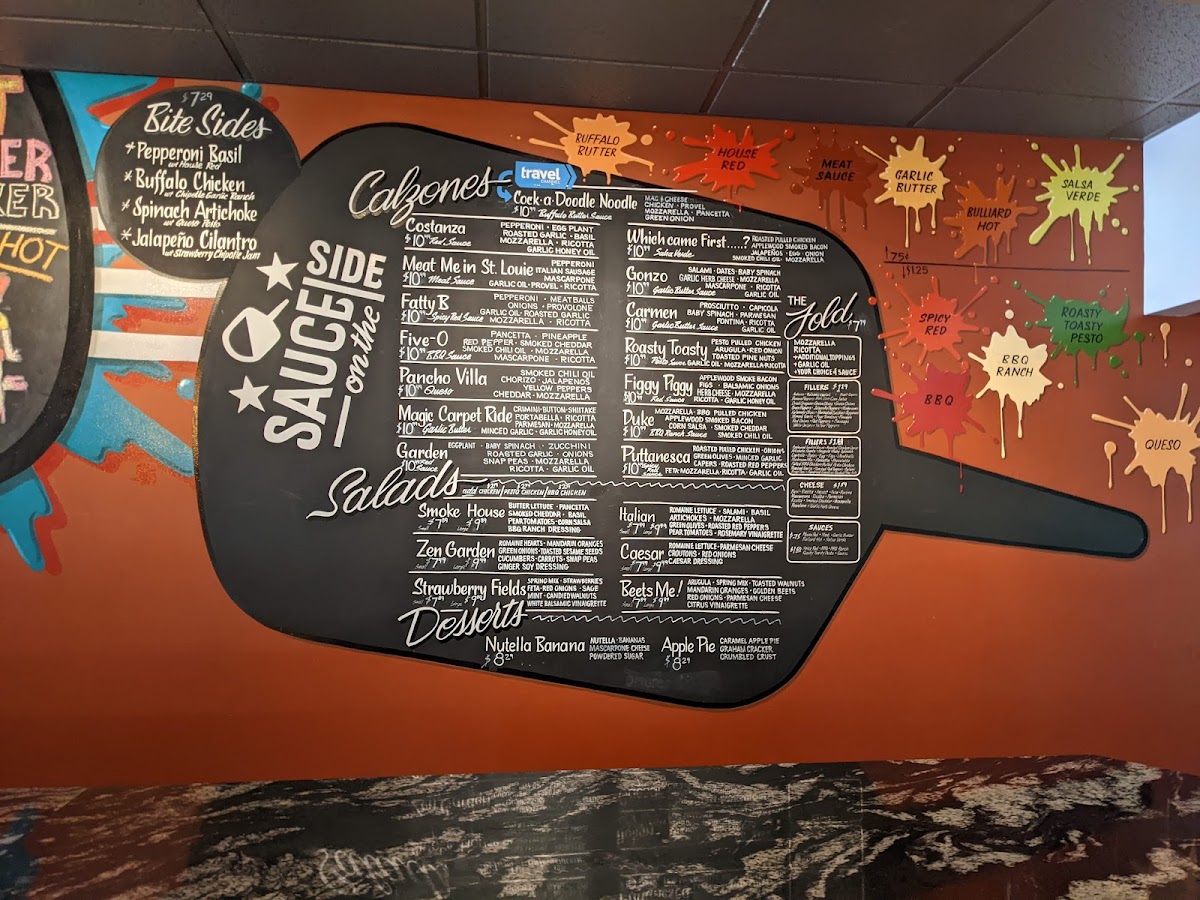 T
ER
KER
HOT
$7 29
Bite Sides
* Pepperoni Basil
w/ House Red
* Buffalo Chicken
w/ Chipotle Garlic Ranch
* Spinach Artichoke
w/ Queso Pesto
* Jalapeño Cilantro
w/ Strawberry Chipotle Jam
SAUCE
SIDE
on the
Calzones
travel
CHANNEL
Cock·a·Doodle Noodle
Buffalo Butter Sauce
MAC & CHEESE
CHICKEN · PROVEL
MOZZARELLA · PANCETTA
GREEN ONION
Costanza
Red Sauce
PEPPERONI · EGG PLANT
ROASTED GARLIC · BASIL
MOZZARELLA · RICOTTA
GARLIC HONEY OIL
Meat Me in St. Louie
Meat Sauce
PEPPERONI
ITALIAN SAUSAGE
MASCARPONE
GARLIC OIL · PROVEL · RICOTTA
Fatty B
Spicy Red Sauce
PEPPERONI · MEATBALLS
ONIONS · PROVOLONE
GARLIC OIL · ROASTED GARLIC
MOZZARELLA · RICOTTA
Five-O
BBQ Sauce
PANCETTA · PINEAPPLE
RED PEPPER · SMOKED CHEDDAR
SMOKED CHILI OIL · MOZZARELLA
MASCARPONE · RICOTTA
Pancho Villa
Queso
SMOKED CHILI OIL
CHORIZO · JALAPENOS
YELLOW PEPPERS
CHEDDAR · MOZZARELLA
Magic Carpet Ride
Garlic Butter
CRIMINI · BUTTON · SHIITAKE
PORTABELLA · RICOTTA
PARMESAN · MOZZARELLA
MINCED GARLIC · GARLIC HONEY OIL
Garden
EGGPLANT · BABY SPINACH · ZUCCHINI
ROASTED GARLIC · ONIONS
SNAP PEAS · MOZZARELLA
RICOTTA · GARLIC OIL
Which came First.....?
Salsa Verde
ROASTED PULLED CHICKEN
APPLEWOOD SMOKED BACON
JALAPEÑOS · EGG · ONION
SMOKED CHILI OIL · MOZZARELLA
Gonzo
Garlic Butter Sauce
SALAMI · DATES · BABY SPINACH
GARLIC HERB CHEESE · MOZZARELLA
MASCARPONE · RICOTTA
GARLIC OIL
Carmen
Garlic Butter Sauce
PROSCIUTTO · CAPICOLA
BABY SPINACH · PARMESAN
FONTINA · RICOTTA
GARLIC OIL
Roasty Toasty
PESTO PULLED CHICKEN
ARUGULA · RED ONION
TOASTED PINE NUTS
GARLIC OIL · MOZZARELLA · RICOTTA
Figgy Piggy
Red Sauce
APPLEWOOD SMOKE BACON
FIGS · BALSAMIC ONIONS
HERB CHEESE · MOZZARELLA
RICOTTA · GARLIC HONEY OIL
Duke
BBQ Ranch Sauce
MOZZARELLA · BBQ PULLED CHICKEN
APPLEWOOD SMOKED BACON
CORN SALSA · SMOKED CHEDDAR
SMOKED CHILI OIL
Puttanesca
ROASTED PULLED CHICKEN · ONIONS
GREEN OLIVES · MINCED GARLIC
CAPERS · ROASTED RED PEPPERS
FETA · MOZZARELLA · RICOTTA · GARLIC OIL
THE
Fold
MOZZARELLA
RICOTTA
+ ADDITIONAL TOPPINGS
+ GARLIC OIL
+ YOUR CHOICE of SAUCE
FILLERS
FILLERS
CHEESE
SAUCES
Salads
add CHICKEN / PESTO CHICKEN / BBQ CHICKEN
Smoke House
BUTTER LETTUCE · PANCETTA
SMOKED CHEDDAR · BASIL
PEAR TOMATOES · CORN SALSA
BBQ RANCH DRESSING
Zen Garden
ROMAINE HEARTS · MANDARIN ORANGES
GREEN ONIONS · TOASTED SESAME SEEDS
CUCUMBERS · CARROTS · SNAP PEAS
GINGER SOY DRESSING
Strawberry Fields
SPRING MIX · STRAWBERRIES
FETA · RED ONIONS · SAGE
MINT · CANDIED WALNUTS
WHITE BALSAMIC VINAIGRETTE
Italian
ROMAINE LETTUCE · SALAMI · BASIL
ARTICHOKES · MOZZARELLA
GREEN OLIVES · ROASTED RED PEPPERS
PEAR TOMATOES · ROSEMARY VINAIGRETTE
Caesar
ROMAINE LETTUCE · PARMESAN CHEESE
CROUTONS · RED ONIONS
CAESAR DRESSING
Beets Me!
ARUGULA · SPRING MIX · TOASTED WALNUTS
MANDARIN ORANGES · GOLDEN BEETS
RED ONIONS · PARMESAN CHEESE
CITRUS VINAIGRETTE
Desserts
Nutella Banana
$8 29
NUTELLA · BANANAS
MASCARPONE CHEESE
POWDERED SUGAR
Apple Pie
$8 29
CARAMEL APPLE PIE
GRAHAM CRACKER
CRUMBLED CRUST
BUFFALO
BUTTER
HOUSE
RED
MEAT
SAUCE
GARLIC
BUTTER
BULLIARD
HOT
SALSA
VERDE
75¢
$1.25
SPICY
RED
BBQ
BBQ
RANCH
ROASTY
TOASTY
PESTO
QUESO